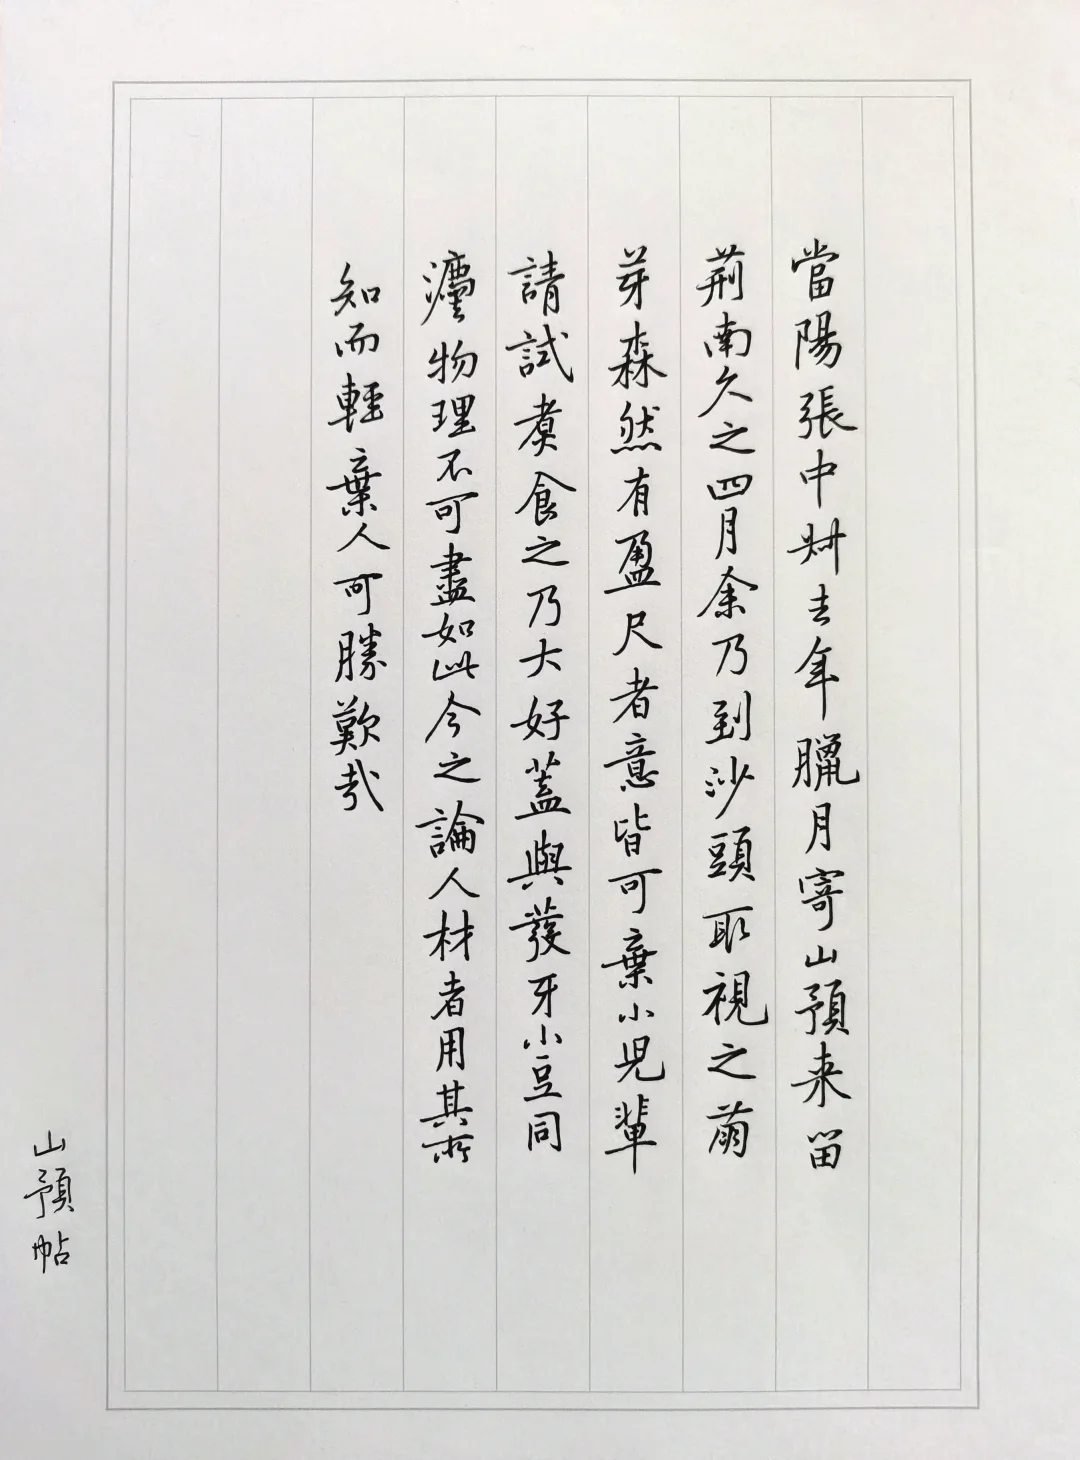 當陽張中叔去年臘月寄山預来留
荊南久之四月余乃到沙頭取視之萠
芽森然有盈尺者意皆可棄小児輩
請試煮食之乃大好蓋與發牙小豆同
灋物理不可盡如此今之論人材者用其所
知而輕棄人可勝歎哉
山預帖